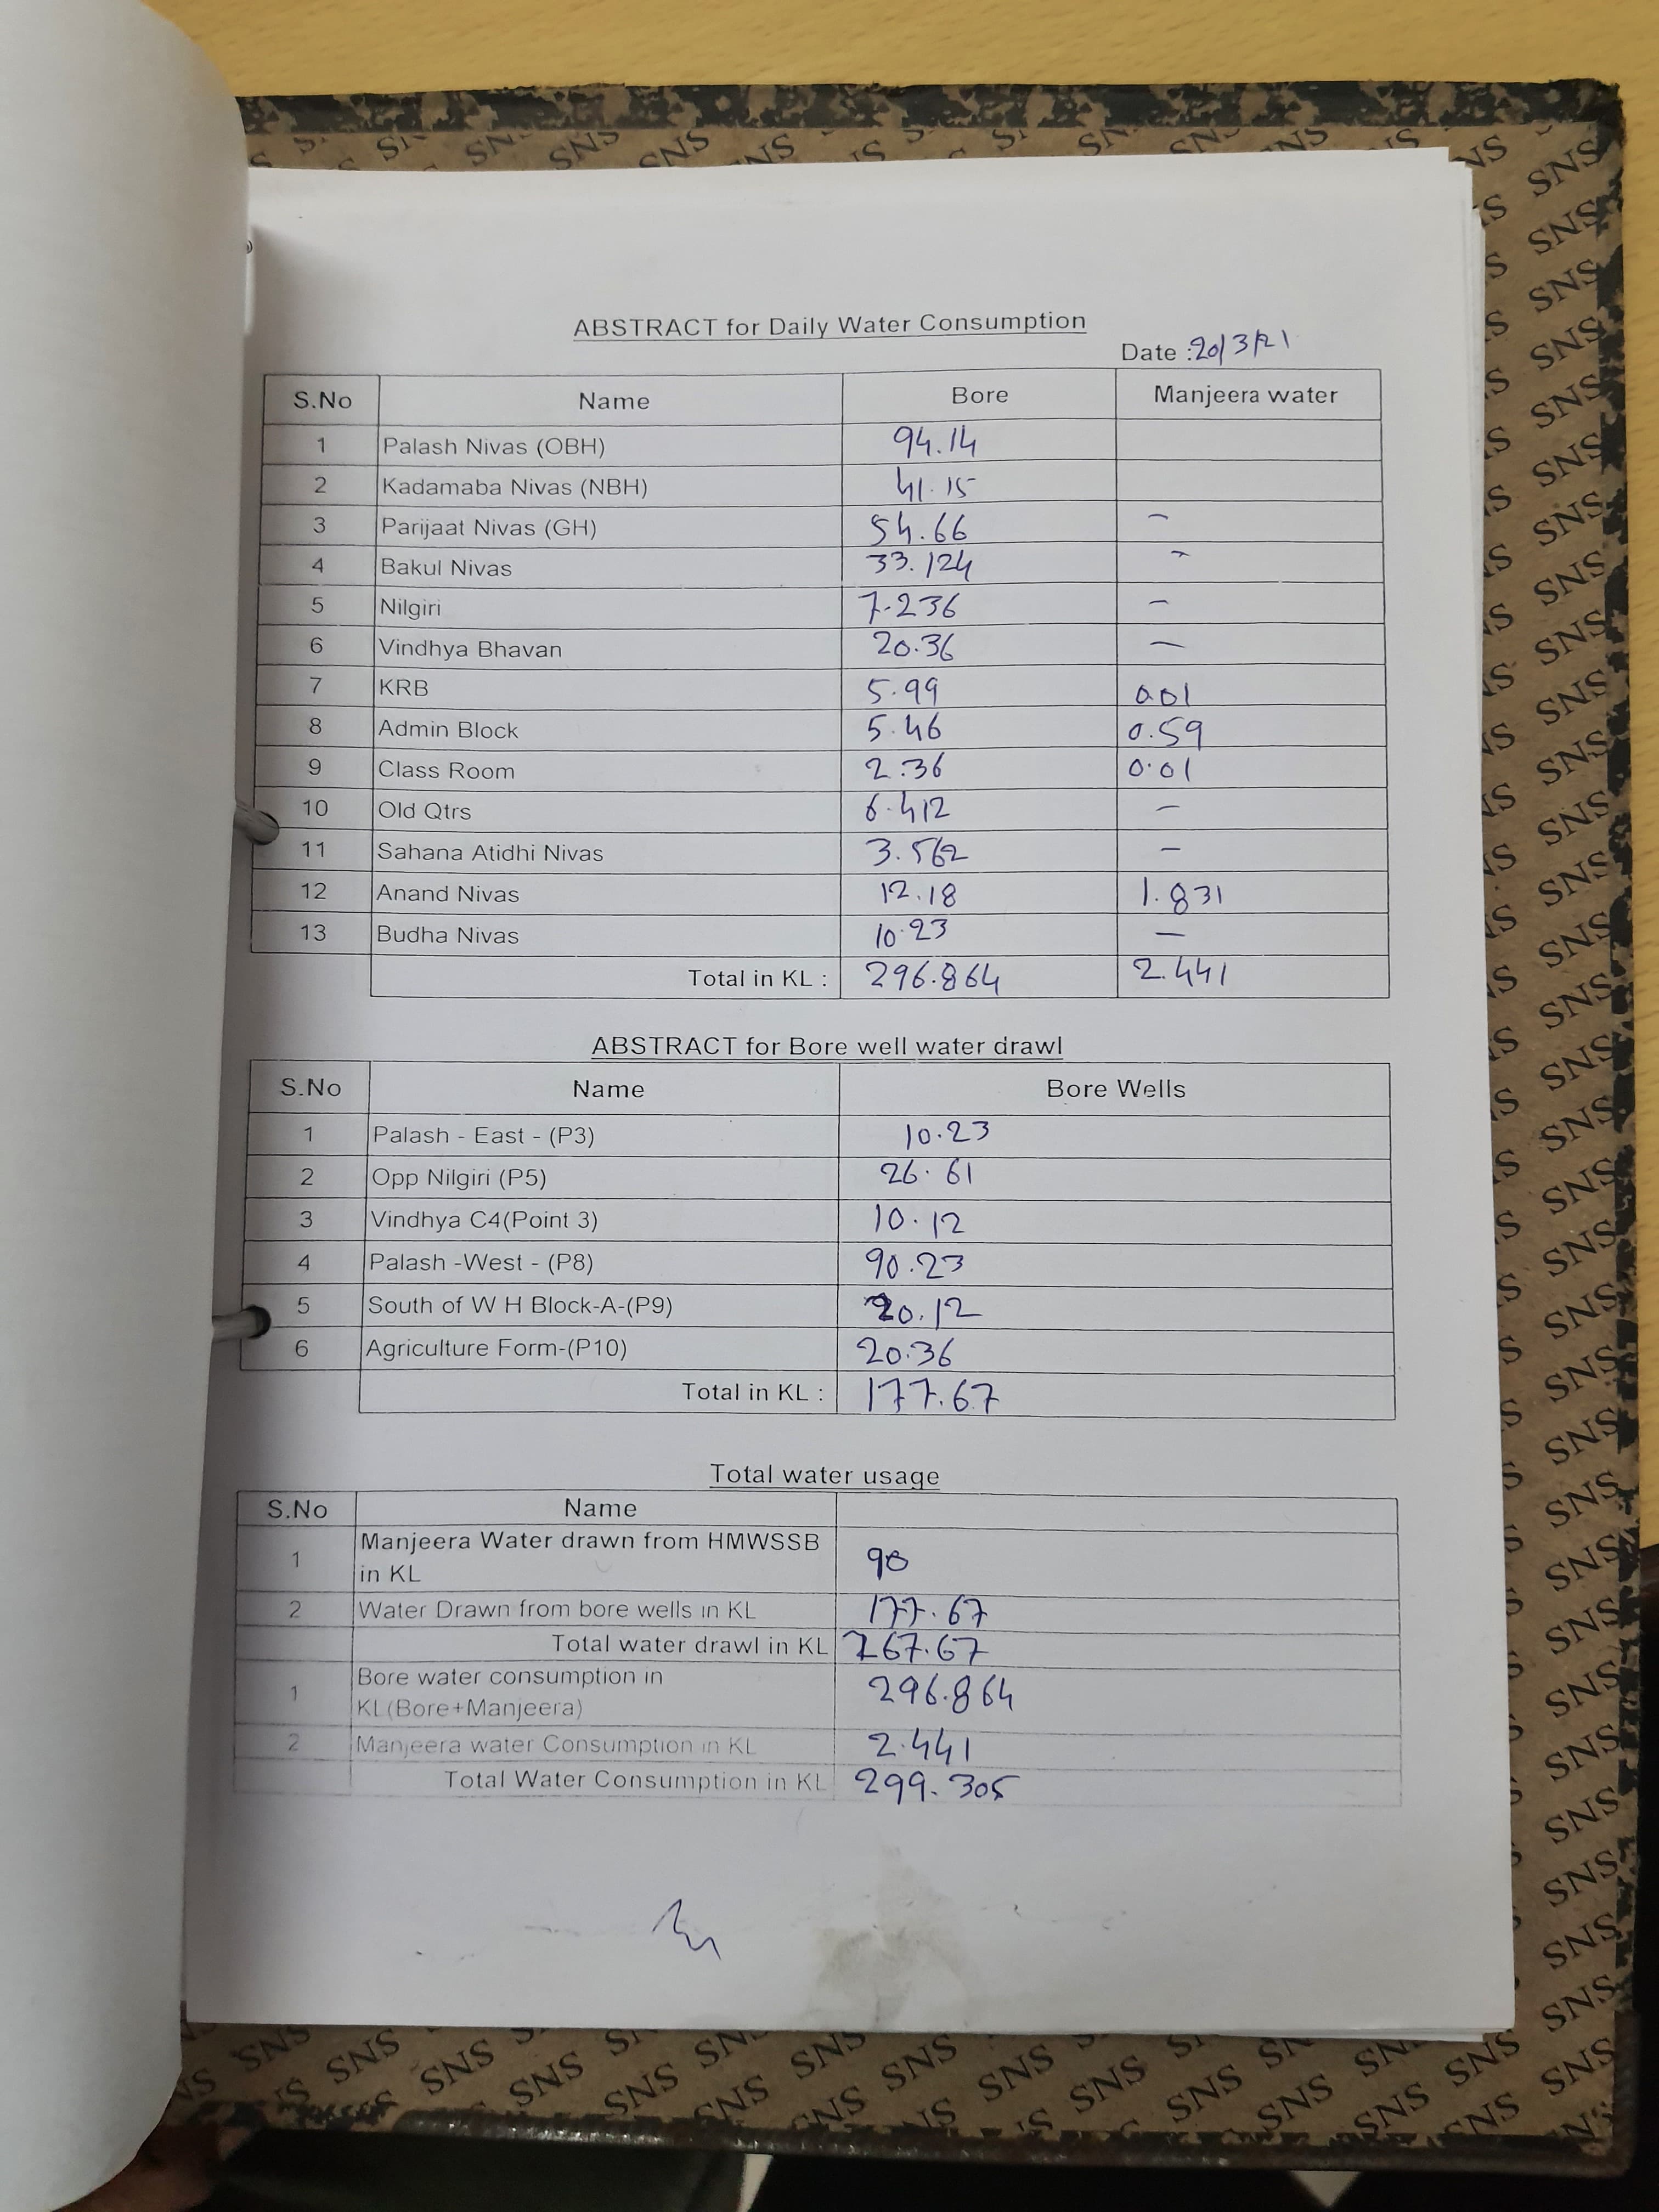 ABSTRACT for Daily Water Consumption
Date : 20/3/21
S.No Name Bore Manjeera water
1 Palash Nivas (OBH) 94.14
2 Kadamaba Nivas (NBH) 41.15
3 Parijaat Nivas (GH) 54.66 —
4 Bakul Nivas 33.124 —
5 Nilgiri 7.236 —
6 Vindhya Bhavan 20.36 —
7 KRB 5.99 0.01
8 Admin Block 5.46 0.59
9 Class Room 2.36 0.01
10 Old Qtrs 6.412 —
11 Sahana Atidhi Nivas 3.562 —
12 Anand Nivas 12.18 1.831
13 Budha Nivas 10.23 —
Total in KL : 296.864 2.441
ABSTRACT for Bore well water drawl
S.No Name Bore Wells
1 Palash - East - (P3) 10.23
2 Opp Nilgiri (P5) 26.61
3 Vindhya C4(Point 3) 10.12
4 Palash -West - (P8) 90.23
5 South of W H Block-A-(P9) 20.12
6 Agriculture Form-(P10) 20.36
Total in KL : 177.67
Total water usage
S.No Name
1 Manjeera Water drawn from HMWSSB
in KL 90
2 Water Drawn from bore wells in KL 177.67
Total water drawl in KL 267.67
1 Bore water consumption in
KL(Bore+Manjeera) 296.864
2 Manjeera water Consumption in KL 2.441
Total Water Consumption in KL 299.305
SNS